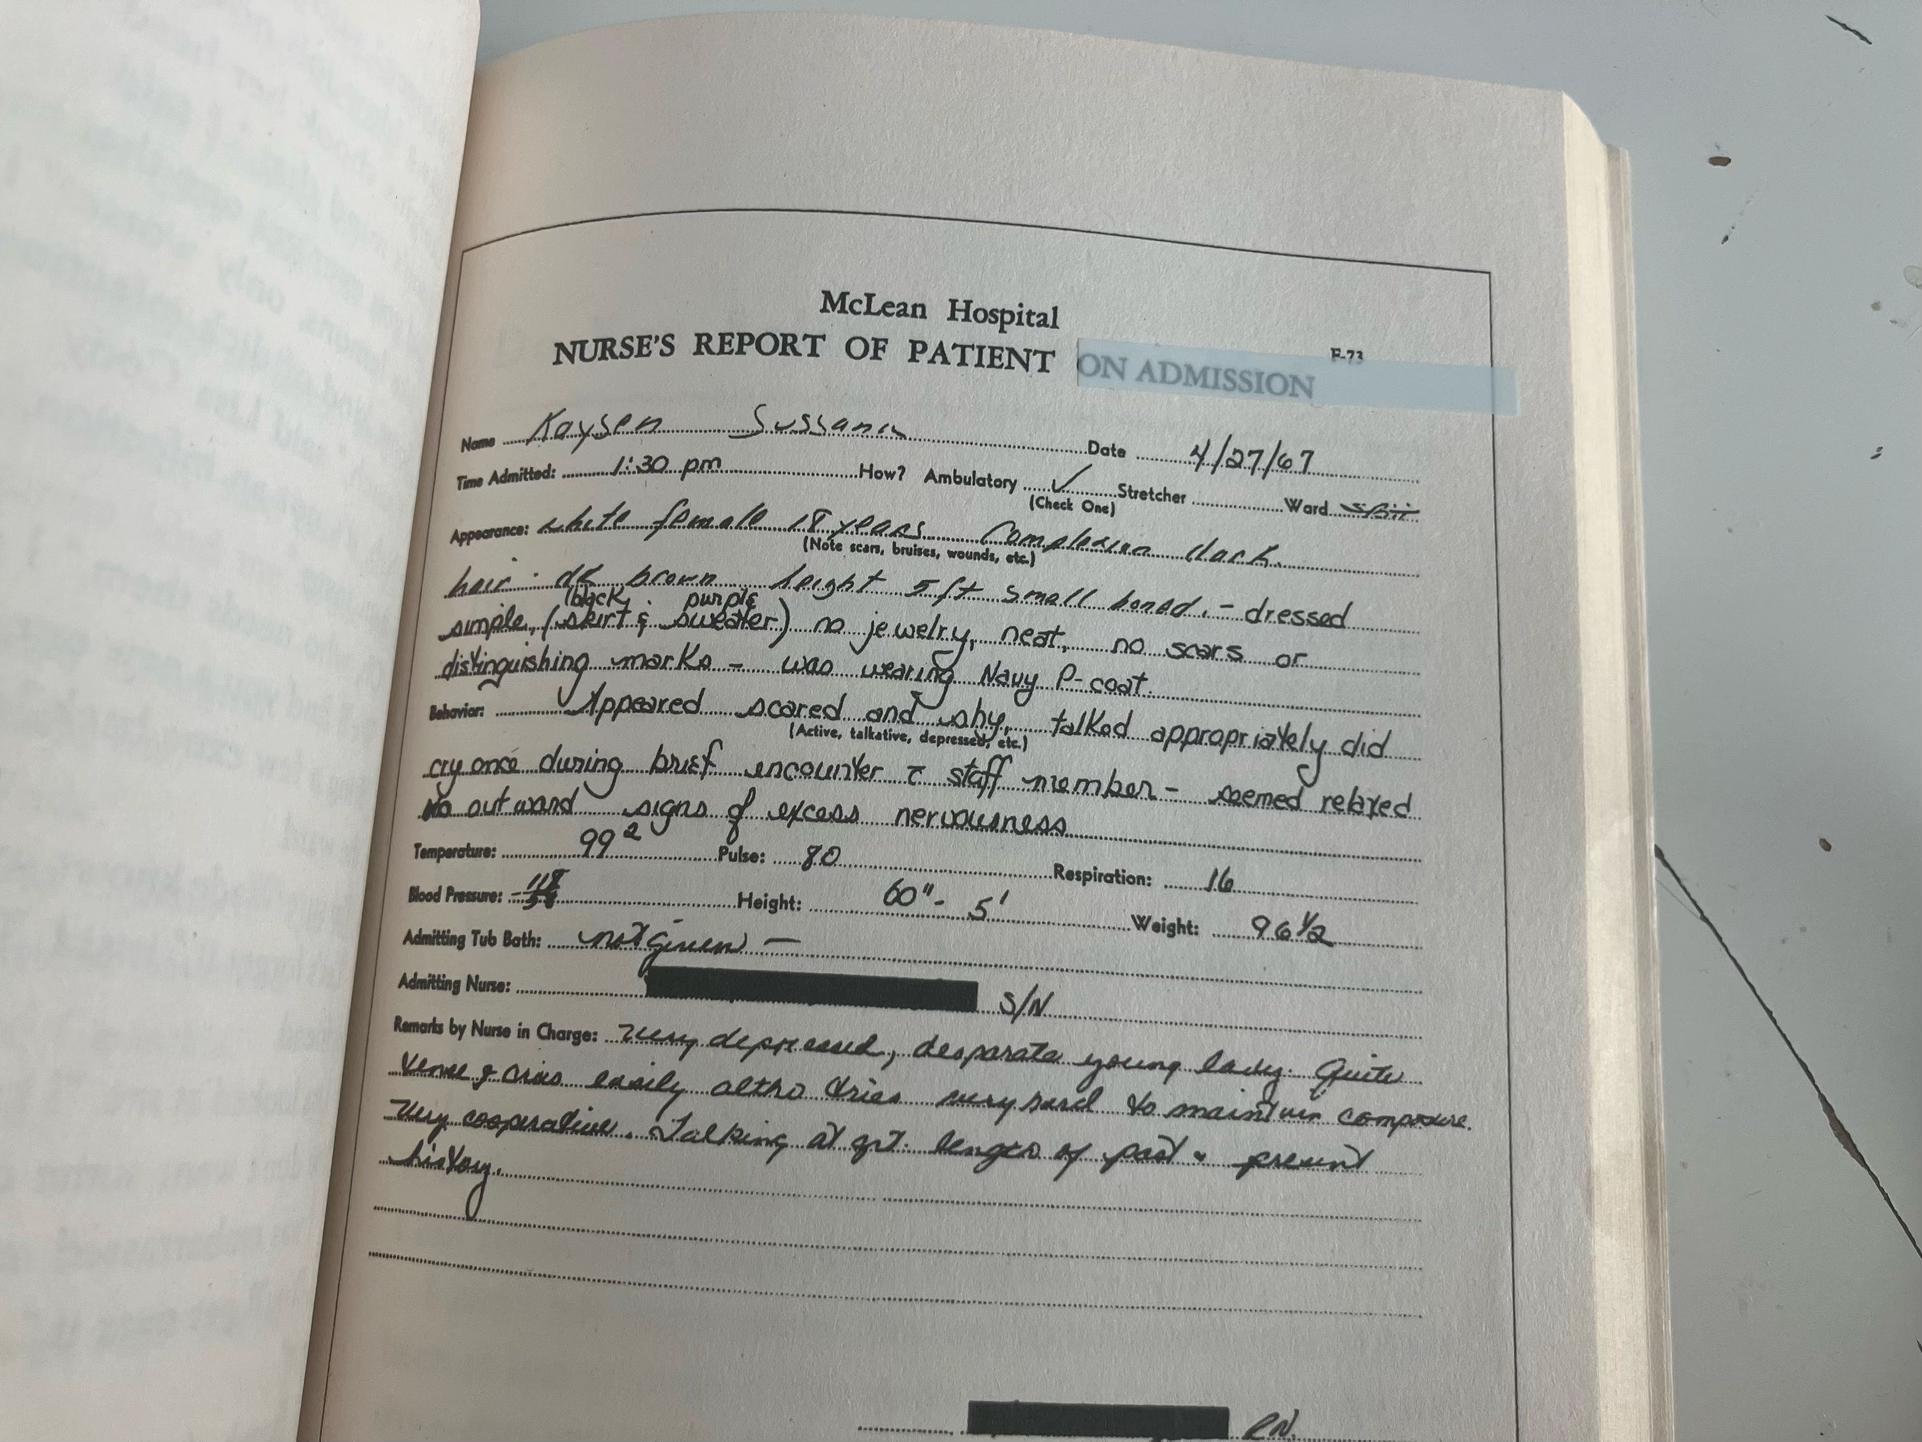 McLean Hospital
NURSE'S REPORT OF PATIENT ON ADMISSION F-73
Name Kaysen Sussana Date 4/27/67
Time Admitted: 1:30 pm How? Ambulatory ✓ Stretcher Ward
(Check One)
Appearance: white female 18 years Complexion dark.
(Note scars, bruises, wounds, etc.)
hair: dk brown height 5 ft small boned. - dressed
black purple
simple, (skirt & sweater) no jewelry, neat, no scars or
distinguishing marks - was wearing Navy P-coat.
Behavior: Appeared scared and shy, talked appropriately did
(Active, talkative, depressed, etc.)
cry once during brief encounter c̄ staff member - seemed relaxed
no outward signs of excess nervousness
Temperature: 99² Pulse: 80 Respiration: 16
Blood Pressure: 118/58 Height: 60" - 5' Weight: 96 1/2
Admitting Tub Bath: not given -
Admitting Nurse: S/N
Remarks by Nurse in Charge: Very depressed, desparate young lady. Quite
tense & cries easily altho tries very hard to maintain composure.
Very cooperative. Talking at grt. length of past & present
history.
RN.